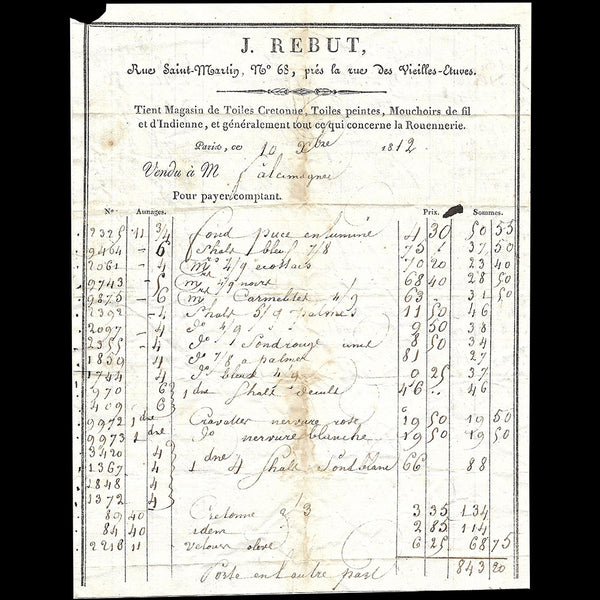 J. REBUT,
Rue Saint-Martin, Nº 68, prés la rue des Vieilles-Etuves.
Tient Magasin de Toiles Cretonne, Toiles peintes, Mouchoirs de fil
et d'Indienne, et généralement tout ce qui concerne la Rouennerie.
Paris, ce 10 Xbre 1812.
Vendu à M
Pour payer comptant.
Nos Aunages. Prix. Sommes.
2325 11 3/4 fond puce enluminé 4 30 50 55
9464 - 6 Shall bleu 7/8 75 37 50
2061 - 4 4/9 ecossais 70 20 23 40
9743 4/9 noirs 68 40 28 50
9875 - 6 Carmelites 4/9 63 31 50
2392 - 4 Shall 5/9 palmes 11 50 46
2097 - 4 do 4/9 9 50 38
2355 - 4 do fond rouge uni 8 50 34
1850 4 do 7/8 a palmes 81 27
1744 4 do bleus 4/9 0 25 37
970 6 1 dne Shall 46 46
409 6
9972 1 dne Cravattes nervure rose 19 50 19 50
9973 1 dne do nervure blanche 19 50 19 50
3420 4
1367 4 1 dne 4 Shall fond blanc 66 88
1848 4
1372 4
89 40 Cretonne 2/3 3 35 134
84 40 idem 2 85 114
2218 11 velours olive 6 25 68 75
Porte en l'autre part 843 20